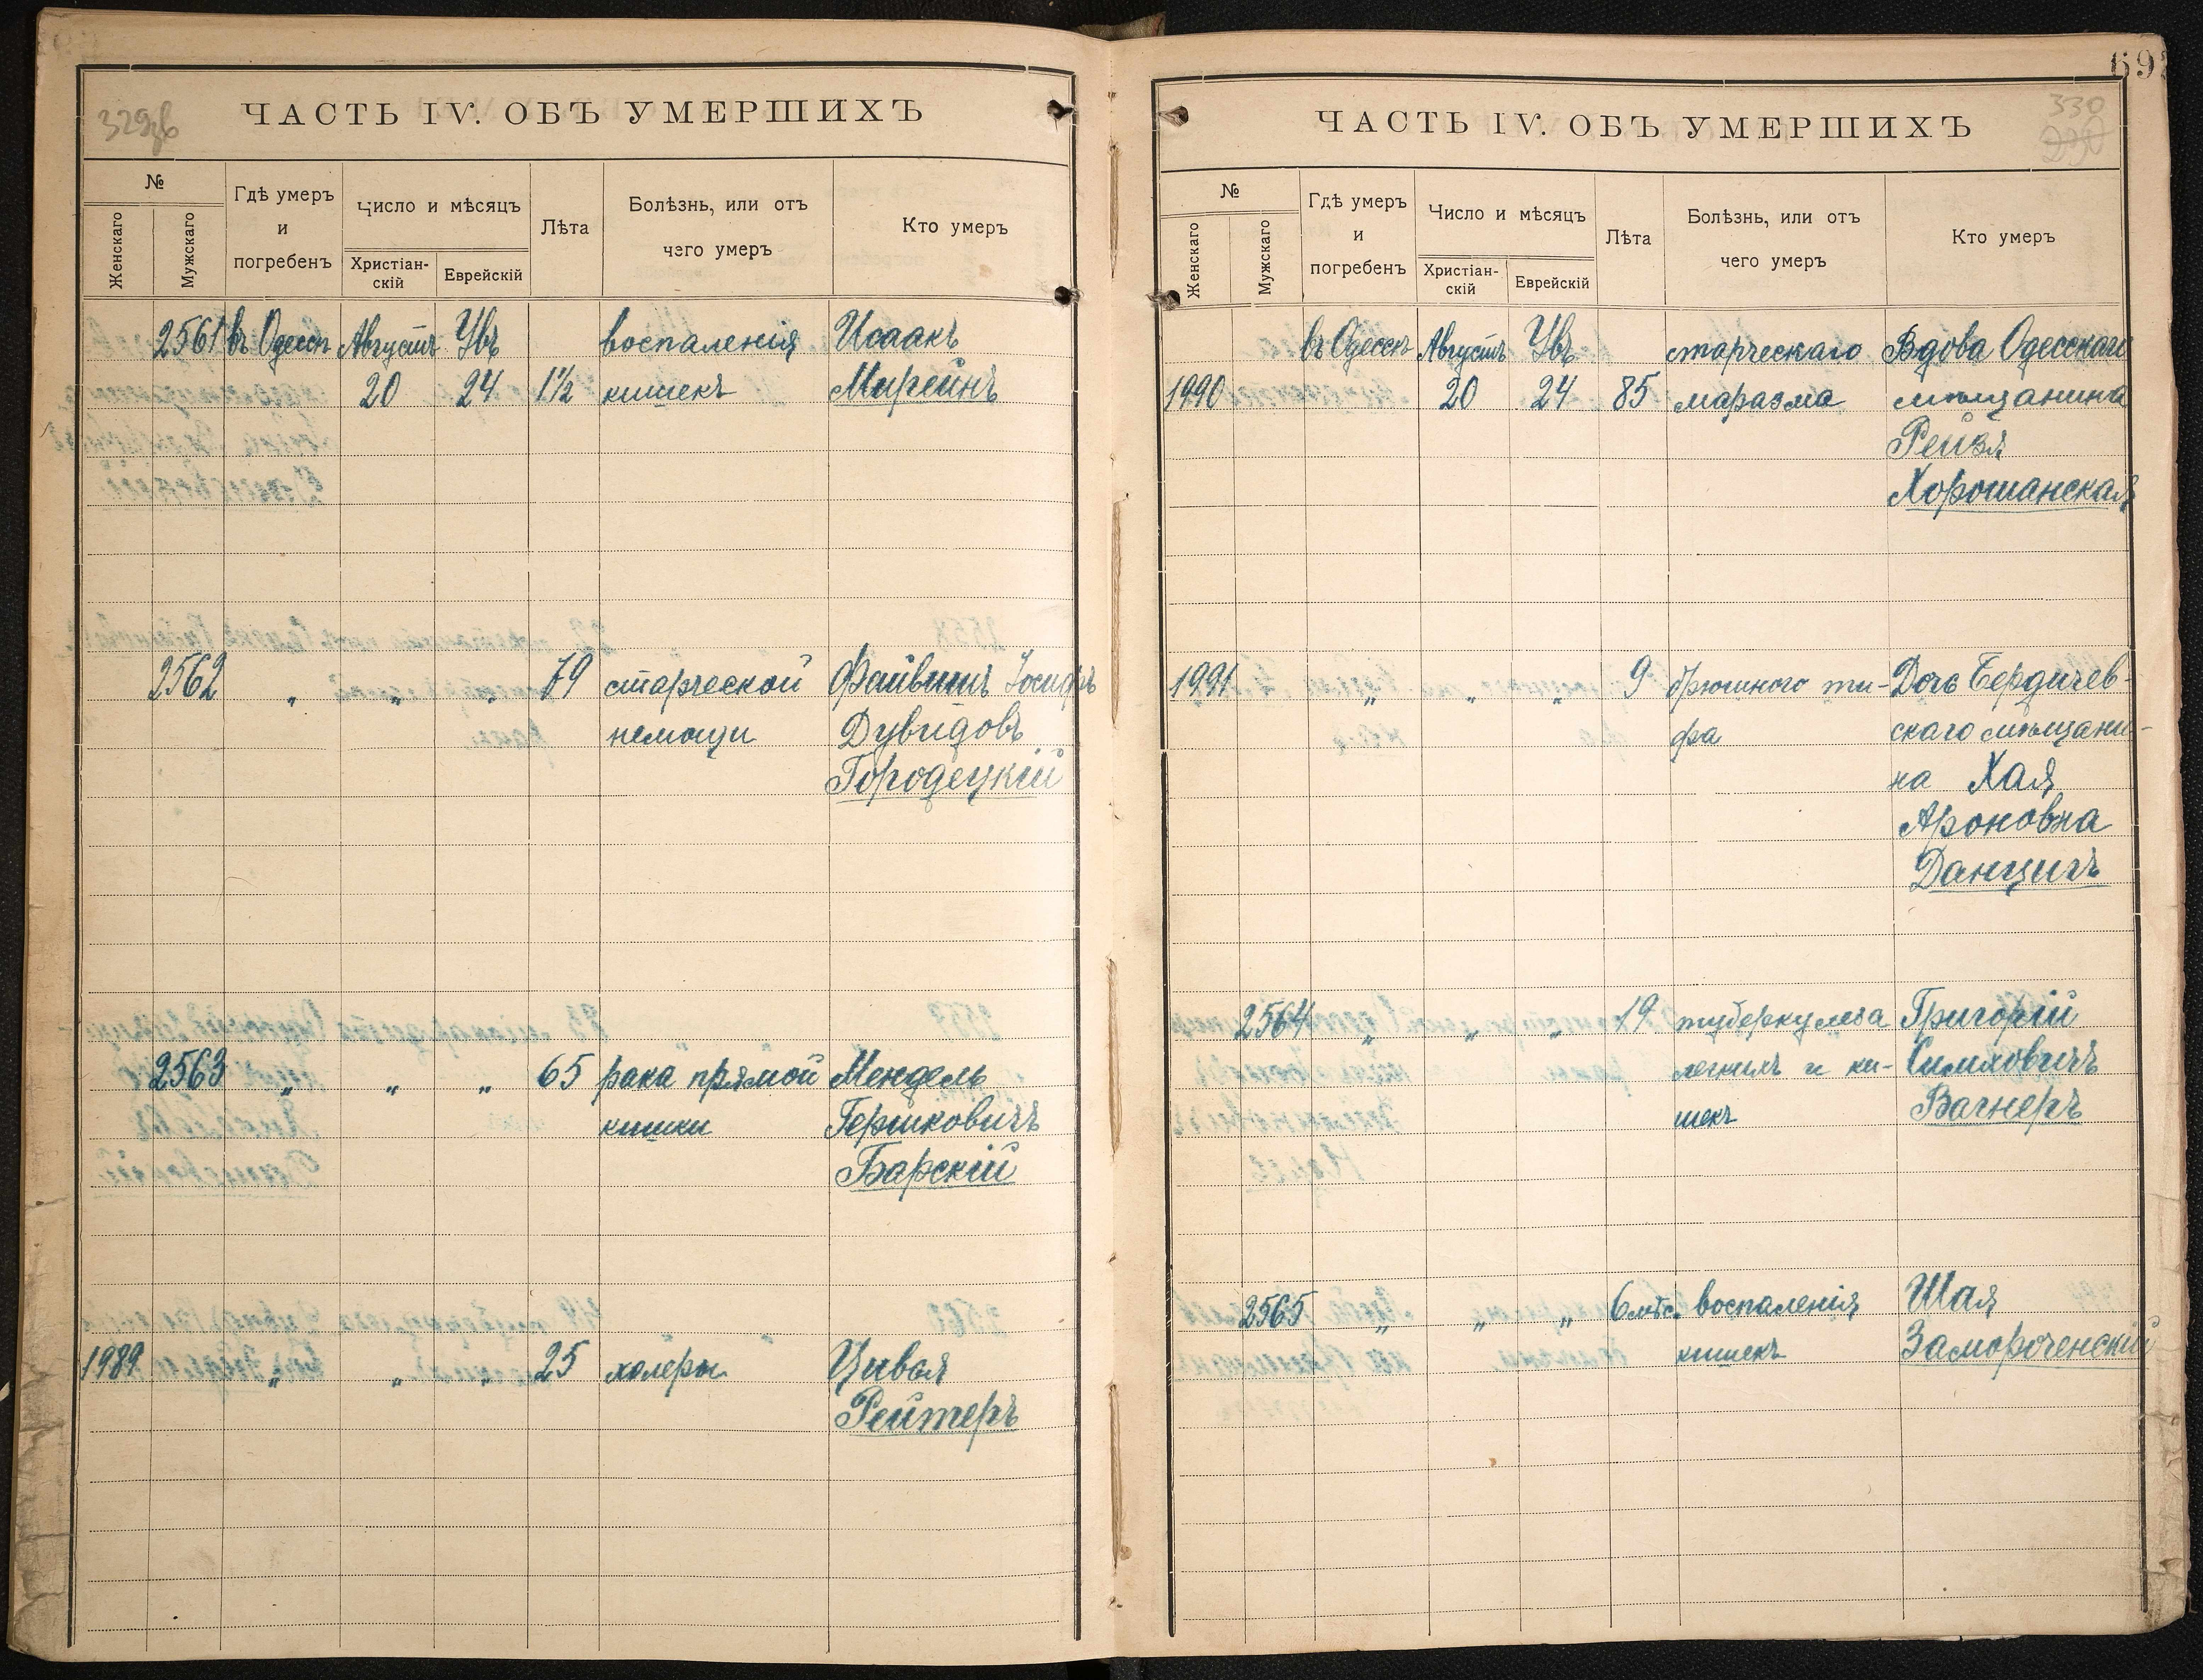 329об
ЧАСТЬ IV. ОБЪ УМЕРШИХЪ
№
Женскаго
Мужскаго
Гдѣ умеръ
и
погребенъ
Число и мѣсяцъ
Христіан-
скій
Еврейскій
Лѣта
Болѣзнь, или отъ
чего умеръ
Кто умеръ
2561 въ Одессѣ Августъ Увъ воспаленія Исаакъ
20 24 1½ кишекъ Мирейнъ
2562 „ „ „ 79 старческой Файвишъ Іосифъ
немощи Дувидовъ
Городецкій
2563 „ „ „ 65 рака прямой Мендель
кишки Гершковичъ
Барскій
1989 „ „ „ 25 холеры Цивья
Рейтеръ
69
330
ЧАСТЬ IV. ОБЪ УМЕРШИХЪ
№
Женскаго
Мужскаго
Гдѣ умеръ
и
погребенъ
Число и мѣсяцъ
Христіан-
скій
Еврейскій
Лѣта
Болѣзнь, или отъ
чего умеръ
Кто умеръ
въ Одессѣ Августъ Увъ старческаго Вдова Одесскаго
1990 20 24 85 маразма мѣщанина
Рейзя
Хорошанская
1991 „ „ „ 9 брюшного ти- Дочь Бердичев-
фа скаго мѣщани-
на Хая
Ароновна
Данцигъ
2564 „ „ „ 19 туберкулеза Григорій
легкихъ и ки- Симховичъ
шекъ Вагнеръ
2565 „ „ „ 6 мѣс. воспаленія Шая
кишекъ Замороченскій